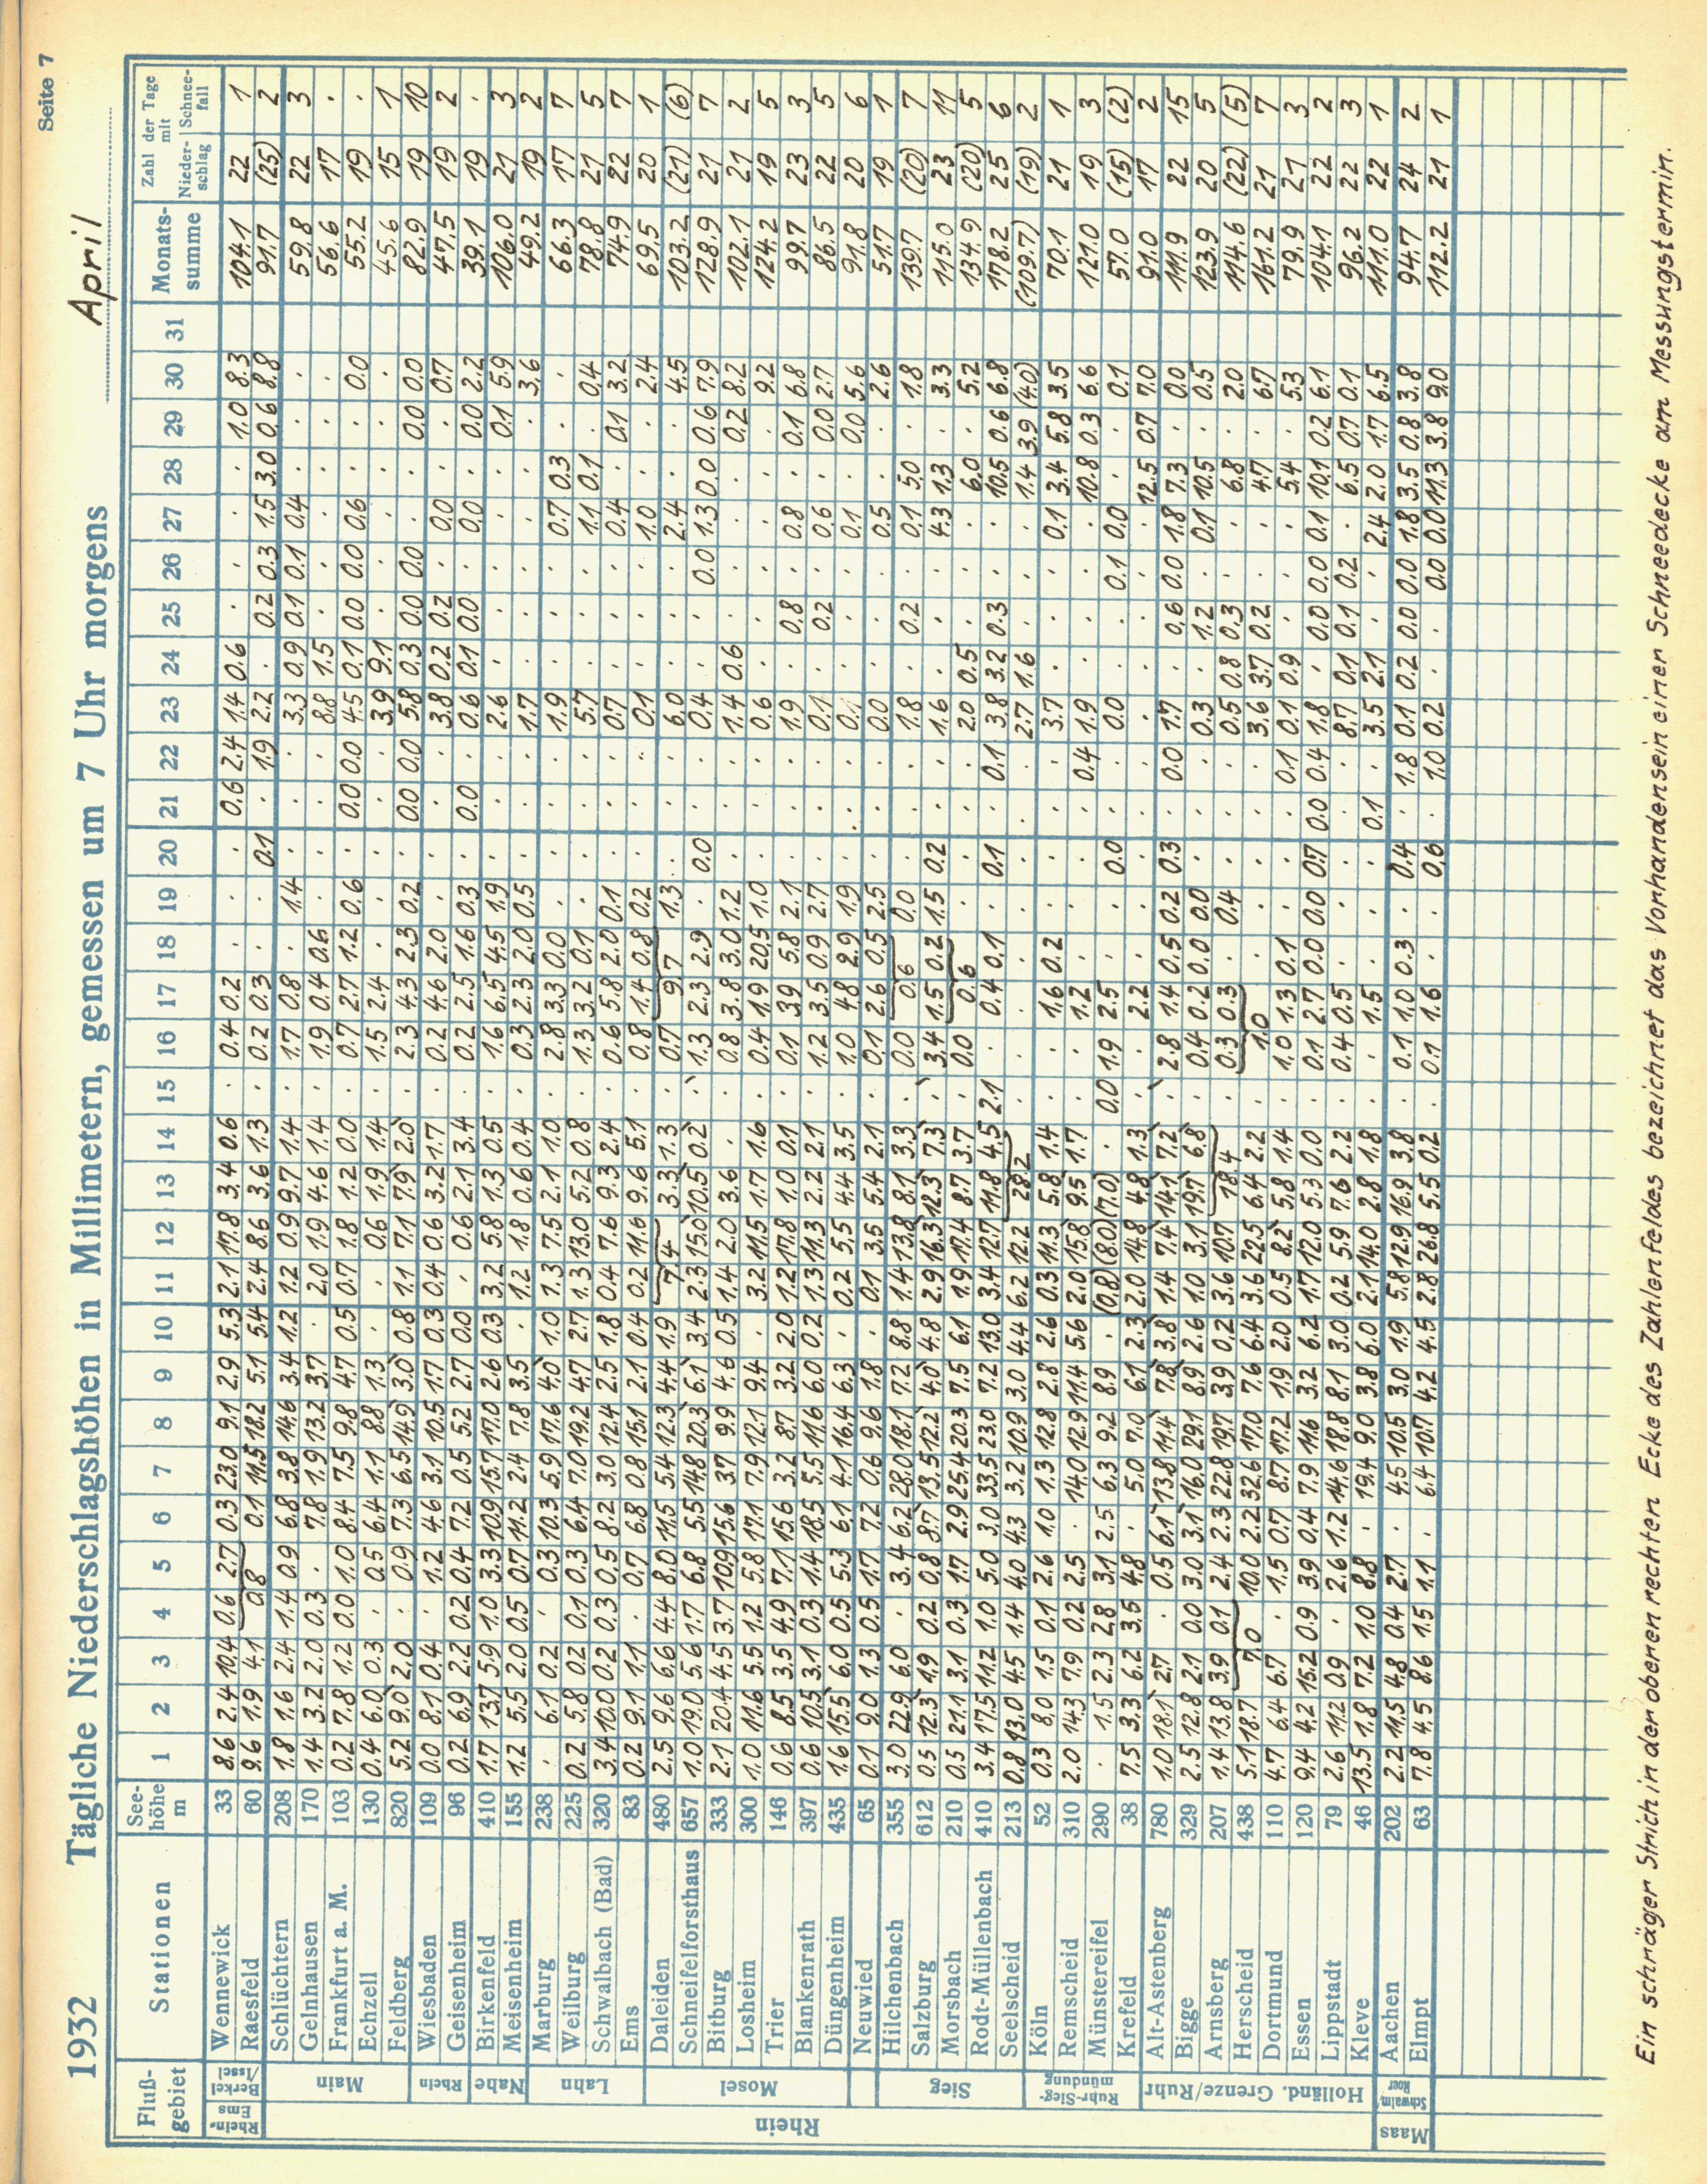 Seite 7
1932 Tägliche Niederschlagshöhen in Millimetern, gemessen um 7 Uhr morgens April
Fluß-gebiet Stationen See-höhe m 1 2 3 4 5 6 7 8 9 10 11 12 13 14 15 16 17 18 19 20 21 22 23 24 25 26 27 28 29 30 31 Monats-summe Zahl der Tage mit Nieder-schlag Schnee-fall
Rhein-Ems Berkel/Issel Wennewick 33 8.6 2.4 10.4 0.6 2.7 0.3 23.0 9.1 2.9 5.3 2.1 17.8 3.4 0.6 . 0.4 0.2 . . . 0.6 2.4 1.4 0.6 . . . . 1.0 8.3 104.1 22 1
Raesfeld 60 9.6 1.9 4.1 0.8 0.1 14.5 18.2 5.1 5.4 2.4 8.6 3.6 1.3 . 0.2 0.3 . . 0.1 . 1.9 2.2 . 0.2 0.3 1.5 3.0 0.6 8.8 91.7 (25) 2
Rhein Main Schlüchtern 208 1.8 1.6 2.4 1.4 0.9 6.8 3.8 14.6 3.4 1.2 1.2 0.9 9.7 1.4 . 1.7 0.8 . 1.4 . . . 3.3 0.9 0.1 0.1 0.4 . . . 59.8 22 3
Gelnhausen 170 1.4 3.2 2.0 0.3 . 7.8 1.9 13.2 3.7 . 2.0 1.9 4.6 1.4 . 1.9 0.4 0.6 . . . . 8.8 1.5 . . . . . . 56.6 17 .
Frankfurt a. M. 103 0.2 7.8 1.2 0.0 1.0 8.4 7.5 9.8 4.7 0.5 0.7 1.8 1.2 0.0 . 0.7 2.7 1.2 0.6 . 0.0 0.0 4.5 0.1 0.0 0.0 0.6 . . 0.0 55.2 19 .
Echzell 130 0.4 6.0 0.3 . 0.5 6.4 1.1 8.8 1.3 . . 0.6 1.9 1.4 . 1.5 2.4 . . . . . 3.9 9.1 . . . . . . 45.6 15 1
Feldberg 820 5.2 9.0 2.0 . 0.9 7.3 6.5 14.9 3.0 0.8 1.1 7.1 7.9 2.0 . 2.3 4.3 2.3 0.2 . 0.0 0.0 5.8 0.3 0.0 0.0 . . 0.0 0.0 82.9 19 10
Rhein Wiesbaden 109 0.0 8.1 0.4 . 1.2 4.6 3.1 10.5 1.7 0.3 0.4 0.6 3.2 1.7 . 0.2 4.6 2.0 . . . . 3.8 0.2 0.2 . 0.0 . . 0.7 47.5 19 2
Geisenheim 96 0.2 6.9 2.2 0.2 0.4 7.2 0.5 5.2 2.7 0.0 . 0.6 2.1 3.4 . 0.2 2.5 1.6 0.3 . 0.0 . 0.6 0.1 0.0 . 0.0 . 0.0 2.2 39.1 19 .
Nahe Birkenfeld 410 1.7 13.7 5.9 1.0 3.3 10.9 15.7 17.0 2.6 0.3 3.2 5.8 1.3 0.5 . 1.6 6.5 4.5 1.9 . . . 2.6 . . . . . 0.1 5.9 106.0 21 3
Meisenheim 155 1.2 5.5 2.0 0.5 0.7 11.2 2.4 7.8 3.5 . 1.2 1.8 0.6 0.4 . 0.3 2.3 2.0 0.5 . . . 1.7 . . . . . . 3.6 49.2 19 2
Lahn Marburg 238 . 6.1 0.2 . 0.3 10.3 5.9 17.6 4.0 1.0 1.3 7.5 2.1 1.0 . 2.8 3.3 0.0 . . . . 1.9 . . . 0.7 0.3 . . 66.3 17 7
Weilburg 225 0.2 5.8 0.2 0.1 0.3 6.4 7.0 19.2 4.7 2.7 1.3 13.0 5.2 0.8 . 1.3 3.2 0.1 . . . . 5.7 . . . 1.1 0.1 . 0.4 78.8 21 5
Schwalbach (Bad) 320 3.4 10.0 0.2 0.3 0.5 8.2 3.0 12.4 2.5 1.8 0.4 7.6 9.3 2.4 . 0.6 5.8 2.0 0.1 . . . 0.7 . . . 0.4 . 0.1 3.2 74.9 22 7
Ems 83 0.2 9.1 1.1 . 0.7 6.8 0.8 15.1 2.1 0.4 0.2 11.6 9.6 5.1 . 0.8 1.4 0.8 0.2 . . . 0.1 . . . 1.0 . . 2.4 69.5 20 1
Mosel Daleiden 480 2.5 9.6 6.6 4.4 8.0 11.5 5.4 12.3 4.4 1.9 7.4 3.3 1.3 . 0.7 9.7 1.3 . . . 6.0 . . . 2.4 . . 4.5 103.2 (21) (6)
Schneifelforsthaus 657 1.0 19.0 5.6 1.7 6.8 5.5 14.8 20.3 6.1 3.4 2.3 15.0 10.5 0.2 . 1.3 2.3 2.9 . 0.0 . . 0.4 . . 0.0 1.3 0.0 0.6 7.9 128.9 21 7
Bitburg 333 2.1 20.4 4.5 3.7 10.9 15.6 3.7 9.9 4.6 0.5 1.4 2.0 3.6 . . 0.8 3.8 3.0 1.2 . . . 1.4 0.6 . . . . 0.2 8.2 102.1 21 2
Losheim 300 1.0 11.6 5.5 1.2 5.8 17.1 7.9 12.1 9.4 . 3.2 11.5 1.7 1.6 . 0.4 1.9 20.5 1.0 . . . 0.6 . . . . . . 9.2 124.2 19 5
Trier 146 0.6 8.5 3.5 4.9 7.1 15.6 3.2 8.7 3.2 2.0 1.2 17.8 1.0 0.1 . 0.1 3.9 5.8 2.1 . . . 1.9 . 0.8 . 0.8 . 0.1 6.8 99.7 23 3
Blankenrath 397 0.6 10.5 3.1 0.3 1.4 18.5 5.5 11.6 6.0 0.2 1.3 11.3 2.2 2.1 . 1.2 3.5 0.9 2.7 . . . 0.1 . 0.2 . 0.6 . 0.0 2.7 86.5 22 5
Düngenheim 435 1.6 15.5 6.0 0.5 5.3 6.1 4.1 16.4 6.3 . 0.2 5.5 4.4 3.5 . 1.0 4.8 2.9 1.9 . . . 0.1 . . . 0.1 . 0.0 5.6 91.8 20 6
Neuwied 65 0.1 9.0 1.3 0.5 1.7 7.2 0.6 9.6 1.8 . 0.1 3.5 5.4 2.1 . 0.1 2.6 0.5 2.5 . . . 0.0 . . . 0.5 . . 2.6 51.7 19 1
Sieg Hilchenbach 355 3.0 22.9 6.0 . 3.4 6.2 28.0 18.1 7.2 8.8 1.4 13.8 8.1 3.3 . 0.0 0.6 0.0 . . . 1.8 . 0.2 . 0.1 5.0 . 1.8 139.7 (20) 7
Salzburg 612 0.5 12.3 1.9 0.2 0.8 8.7 13.5 12.2 4.0 4.8 2.9 16.3 12.3 7.3 . 3.4 1.5 0.2 1.5 0.2 . . 1.6 . . . 4.3 1.3 . 3.3 115.0 23 11
Morsbach 210 0.5 21.1 3.1 0.3 1.7 2.9 25.4 20.3 7.5 6.1 1.9 17.4 8.7 3.7 . 0.0 0.6 . . . . 2.0 0.5 . . . 6.0 . 5.2 134.9 (20) 5
Rodt-Müllenbach 410 3.4 17.5 11.2 1.0 5.0 3.0 33.5 23.0 7.2 13.0 3.4 12.7 11.8 4.5 2.1 . 0.4 0.1 . 0.1 . 0.1 3.8 3.2 0.3 . . 10.5 0.6 6.8 178.2 25 6
Seelscheid 213 0.8 13.0 4.5 1.4 4.0 4.3 3.2 10.9 3.0 4.4 6.2 12.2 28.2 . . . . . . . . 2.7 1.6 . . . 1.4 3.9 (4.0) (109.7) (19) 2
Ruhr-Sieg-mündung Köln 52 0.3 8.0 1.5 0.1 2.6 1.0 1.3 12.8 2.8 2.6 0.3 11.3 5.8 1.4 . . 1.6 0.2 . . . . 3.7 . . . 0.1 3.4 5.8 3.5 70.1 21 1
Remscheid 310 2.0 14.3 7.9 0.2 2.5 . 14.0 12.9 11.4 5.6 2.0 15.8 9.5 1.7 . . 1.2 . . . . 0.4 1.9 . . . . 10.8 0.3 6.6 121.0 19 3
Münstereifel 290 . 1.5 2.3 2.8 3.1 2.5 6.3 9.2 8.9 . (0.8) (8.0) (7.0) . 0.0 1.9 2.5 . . 0.0 . . 0.0 . . 0.1 0.0 . . 0.1 57.0 (15) (2)
Krefeld 38 7.5 3.3 6.2 3.5 4.8 . 5.0 7.0 6.1 2.3 2.0 14.8 4.8 1.3 . . 2.2 . . . . . . . . . . 12.5 0.7 7.0 91.0 17 2
Holländ. Grenze/Ruhr Alt-Astenberg 780 1.0 18.1 2.7 . 0.5 6.1 13.8 14.4 7.8 3.8 1.4 7.4 14.1 7.2 . 2.8 1.4 0.5 0.2 0.3 . 0.0 1.7 . 0.6 0.0 1.8 7.3 . 0.0 111.9 22 15
Bigge 329 2.5 12.8 2.1 0.0 3.0 3.1 16.0 29.1 8.9 2.6 1.0 3.1 19.7 6.8 . 0.4 0.2 0.0 0.0 . . . 0.3 . 1.2 . 0.1 10.5 . 0.5 123.9 20 5
Arnsberg 207 1.4 13.8 3.9 0.1 2.4 2.3 22.8 19.7 3.9 0.2 3.6 10.7 18.4 . 0.3 0.3 . 0.4 . . . 0.5 0.8 0.3 . . 6.8 . 2.0 114.6 (22) (5)
Herscheid 438 5.1 18.7 7.0 10.0 2.2 32.6 17.0 7.6 6.4 3.6 22.5 6.4 2.2 . 1.0 . . . . . 3.6 3.7 0.2 . . 4.7 . 6.7 161.2 21 7
Dortmund 110 4.7 6.4 6.7 . 1.5 0.7 8.7 17.2 1.9 2.0 0.5 8.2 5.8 1.4 . 1.0 1.3 0.1 . . . 0.1 0.1 0.9 . . . 5.4 . 5.3 79.9 21 3
Essen 120 9.4 4.2 15.2 0.9 3.9 0.4 7.9 11.6 3.2 6.2 1.7 12.0 5.3 0.0 . 0.1 2.7 0.0 0.0 0.7 0.0 0.4 1.8 . 0.0 0.0 0.1 10.1 0.2 6.1 104.1 22 2
Lippstadt 79 2.6 11.2 0.9 . 2.6 1.2 14.6 18.8 8.1 3.0 0.2 5.9 7.6 2.2 . 0.4 0.5 . . . . . 8.7 0.1 0.1 0.2 . 6.5 0.7 0.1 96.2 22 3
Kleve 46 13.5 1.8 7.2 1.0 8.8 . 19.4 9.0 3.8 6.0 2.1 14.0 2.8 1.8 . . 1.5 . . . 0.1 . 3.5 2.1 . . 2.4 2.0 1.7 6.5 111.0 22 1
Maas Schwalm, Roer Aachen 202 2.2 11.5 4.8 0.4 2.7 . 4.5 10.5 3.0 1.9 5.8 12.9 16.9 3.8 . 0.1 1.0 0.3 . 0.4 . 1.8 0.1 0.2 0.0 0.0 1.8 3.5 0.8 3.8 94.7 24 2
Elmpt 63 7.8 4.5 8.6 1.5 1.1 . 6.4 10.7 4.2 4.5 2.8 26.8 5.5 0.2 . 0.1 1.6 . . 0.6 . 1.0 0.2 . . 0.0 0.0 11.3 3.8 9.0 112.2 21 1
Ein schräger Strich in der oberen rechten Ecke des Zahlenfeldes bezeichnet das Vorhandensein einer Schneedecke am Messungstermin.